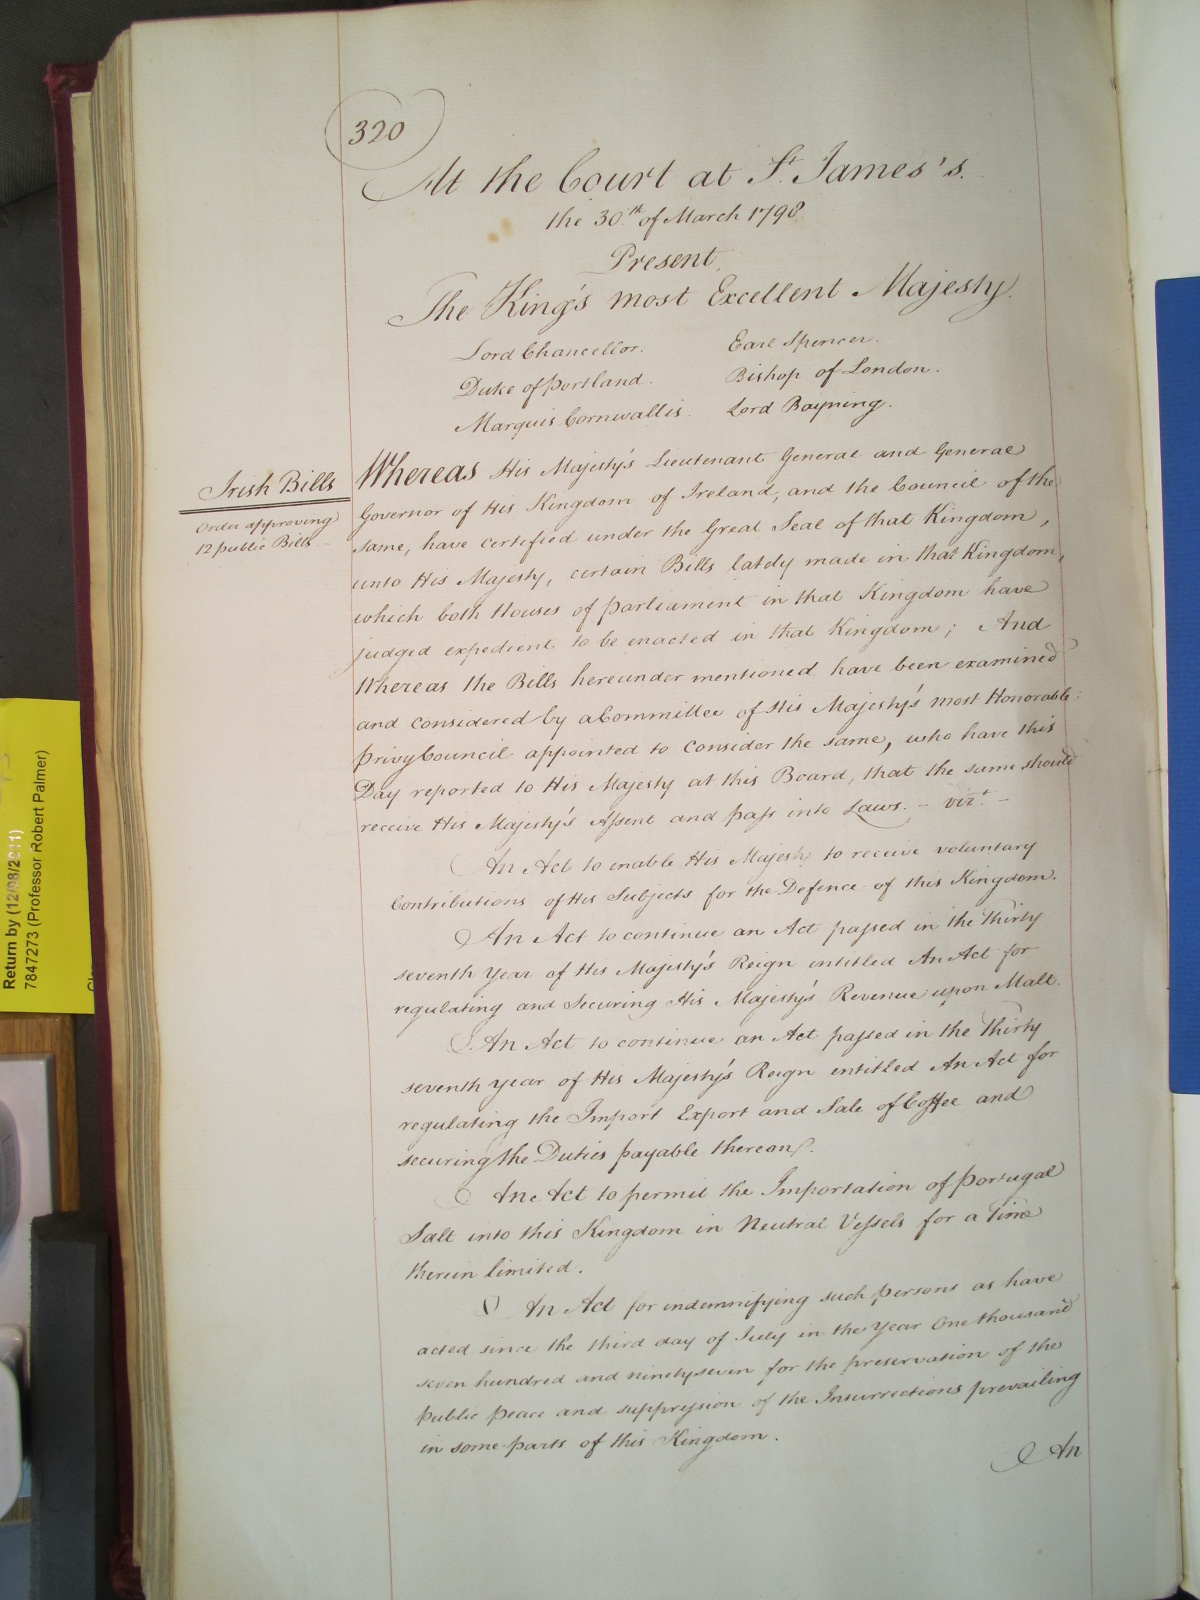 320
At the Court at St. James's.
the 30th of March 1798
Present
The King's most Excellent Majesty.
Lord Chancellor. Earl Spencer.
Duke of Portland. Bishop of London.
Marquis Cornwallis. Lord Bayning.
Irish Bills
Order approving
12 public Bills
Whereas His Majesty's Lieutenant General and General
Governor of His Kingdom of Ireland, and the Council of the
same, have certified under the Great Seal of that Kingdom,
unto His Majesty, certain Bills lately made in that Kingdom,
which both Houses of Parliament in that Kingdom have
judged expedient to be enacted in that Kingdom; And
Whereas the Bills hereunder mentioned have been examined
and considered by a Committee of His Majesty's most Honorable
Privy Council appointed to consider the same, who have this
Day reported to His Majesty at this Board, that the same should
receive His Majesty's Assent and pass into Laws. – vizt. –
An Act to enable His Majesty to receive voluntary
Contributions of His Subjects for the Defence of this Kingdom.
An Act to continue an Act passed in the Thirty
seventh Year of His Majesty's Reign intitled An Act for
regulating and Securing His Majesty's Revenue upon Malt.
An Act to continue an Act passed in the Thirty
seventh year of His Majesty's Reign entitled An Act for
regulating the Import Export and Sale of Coffee and
securing the Duties payable thereon.
An Act to permit the Importation of Portugal
Salt into this Kingdom in Neutral Vessels for a Time
therein limited.
An Act for indemnifying such persons as have
acted since the third day of July in the Year One thousand
seven hundred and ninety seven for the preservation of the
public peace and suppression of the Insurrections prevailing
in some parts of this Kingdom.
An
Return by (12/08/2011)
7847273 (Professor Robert Palmer)